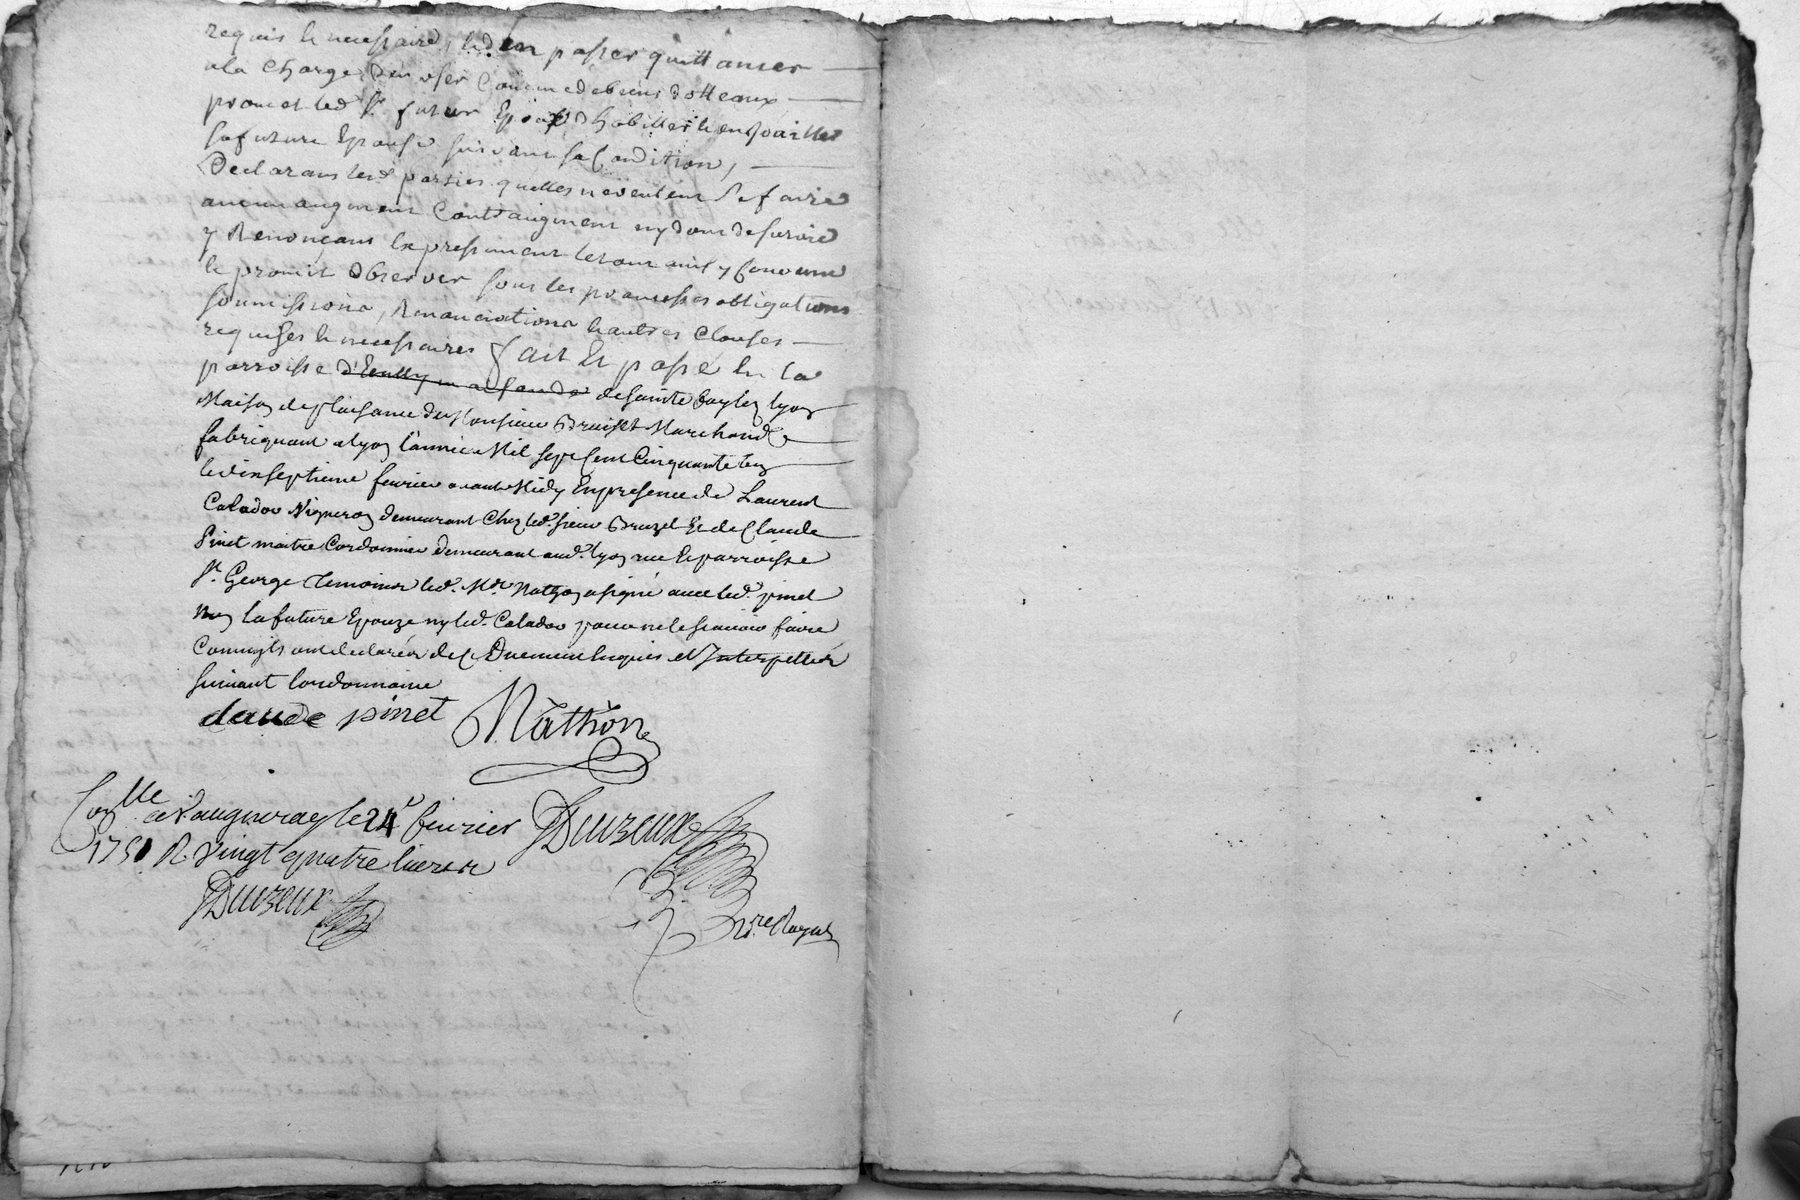 requis et necessaires, et d'en passer quittances
a la charge d'en user comme de biens dotteaux
promet led. Sr. futur Epoux d'habiller et enjoailler
sa future Epouse suivant sa Condition,
Declarans lesd. parties quelles ne veulent se faire
aucun augment Contraugment ny don de survie
y Renonçans Expressement et tout ainsy Convenu
et promis observer sous les promesses obligations
soumissions, Renonciations et autres Clauses
requises et necessaires fait Et passé En la
parroisse de Sainte foy les lyon
Maison de plaisance de Monsieur Marchand
fabriquant a lyon l'année Mil sept Cent Cinquante un
le dixseptieme fevrier avant Midy En presence de Laurent
Caladou Vigneron demeurant Chez led. sieur Et de Claude
Pinet maitre Cordonnier demeurant aud. lyon rue Et parroisse
St. George temoins led. Mr. Nathon a signé avec led. pinet
non la future Epouze ny led. Caladou pour ne le sçavoir faire
Comm'ils ont declarés de Ce Duement Enquis et Interpellés
suivant l'ordonnance
claude pinet Nathon
Conllé a Vaugneray le 24e fevrier Duvzeux
1751 R. Vingt quatre livres
Duvzeux
nre Royal